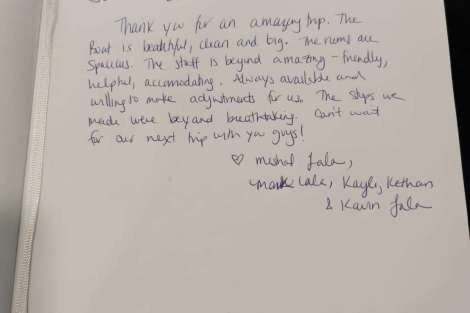 Thank you for an amazing trip. The
Boat is beautiful, clean and big. The rooms are
Spacious. The staff is beyond amazing - friendly,
helpful, accomodating. Always available and
willing to make adjustments for us. The stops we
made were beyond breathtaking. Can't wait
for our next trip with you guys!
♡ Lala,
Mark Lala, Kayli, Kethan
& Kavin Lala